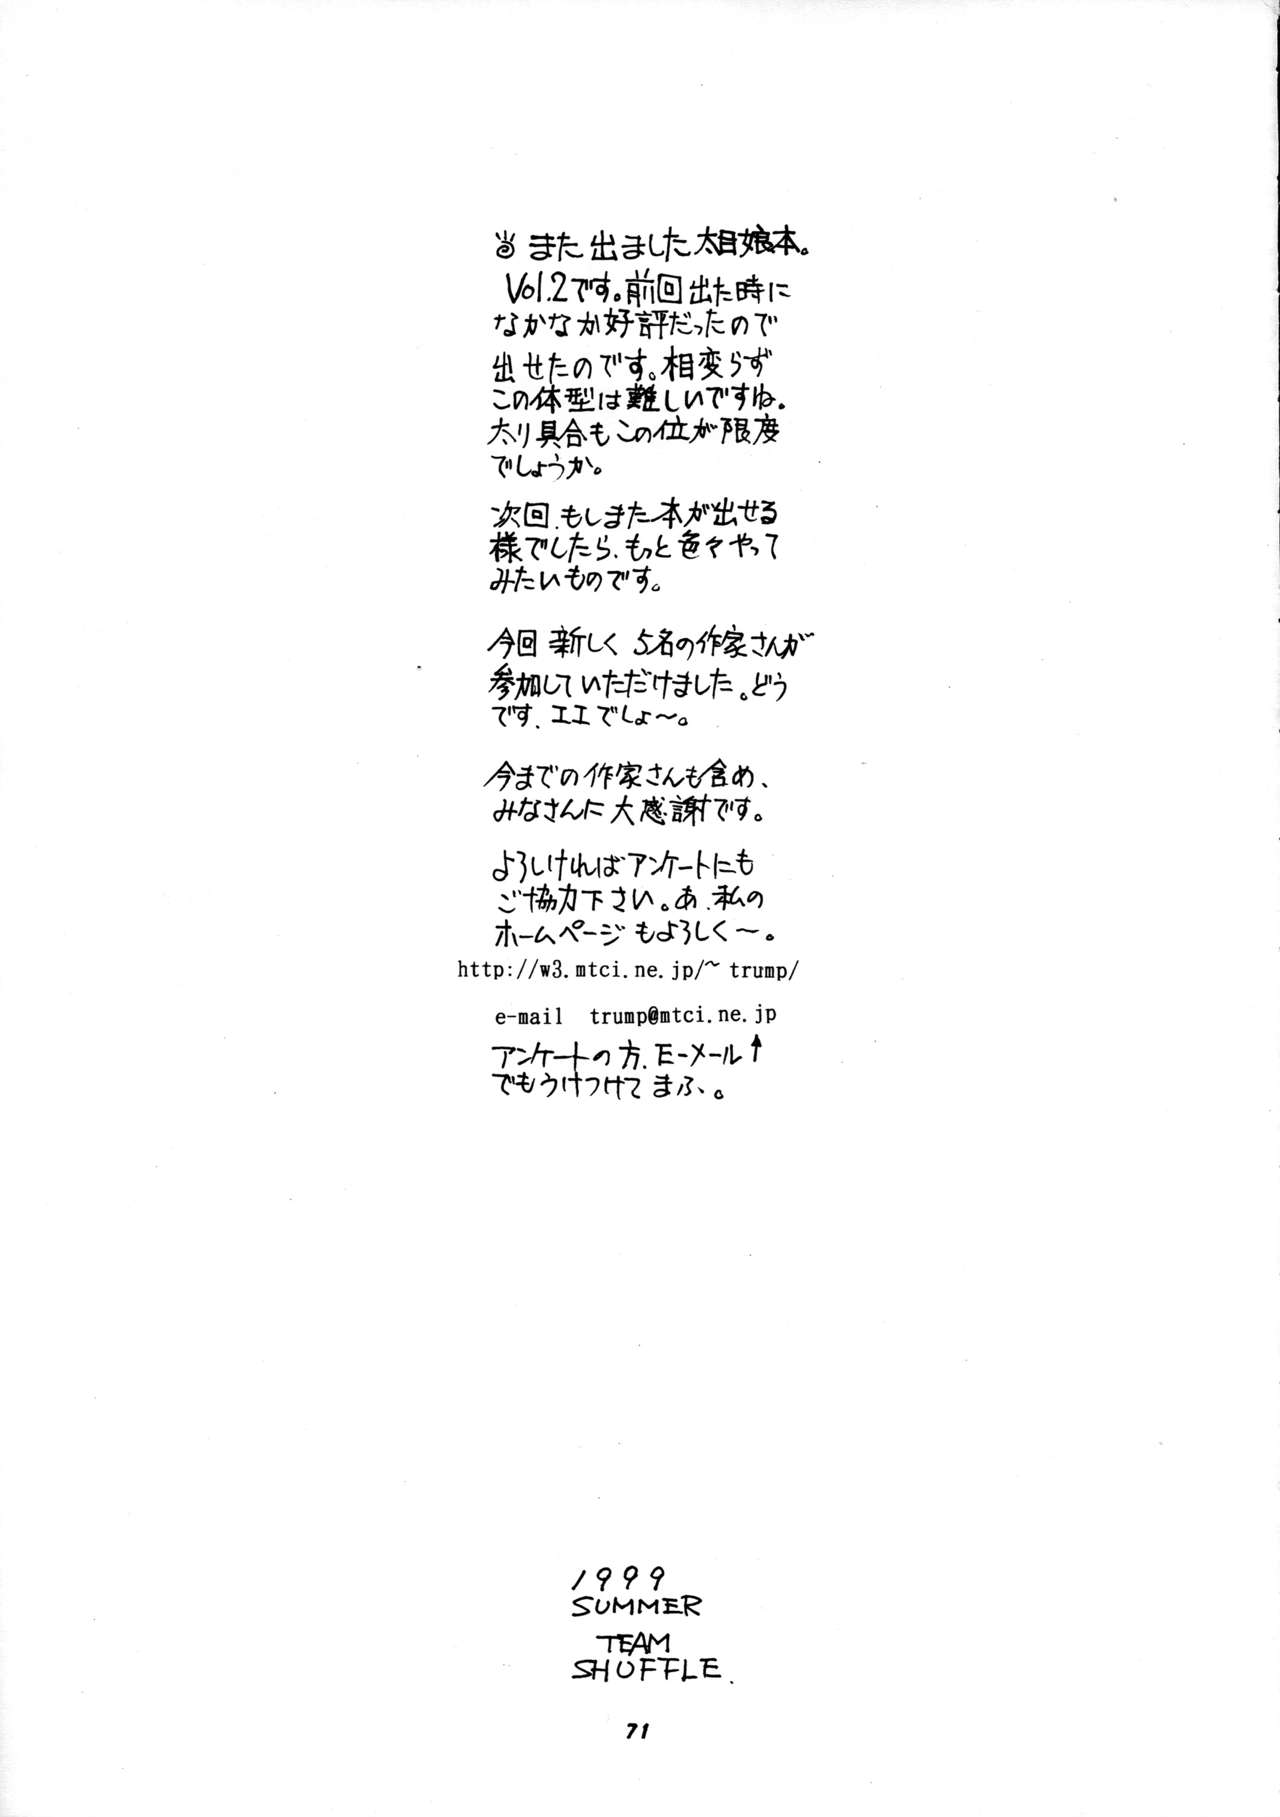 また出ました太目娘本。
Vol.2です。前回出た時に
なかなか好評だったので
出せたのです。相変らず
この体型は難しいですね。
太り具合もこの位が限度
でしょうか。
次回、もしまた本が出せる
様でしたら、もっと色々やって
みたいものです。
今回 新しく 5名の作家さんが
参加していただけました。どう
です、エエでしょ〜。
今までの作家さんも含め、
みなさんに大感謝です。
よろしければアンケートにも
ご協力下さい。あ、私の
ホームページもよろしく〜。
http://w3.mtci.ne.jp/~trump/
e-mail trump@mtci.ne.jp
アンケートの方、E-メール↑
でもうけつけてまふ、。
1999
SUMMER
TEAM
SHUFFLE.
71